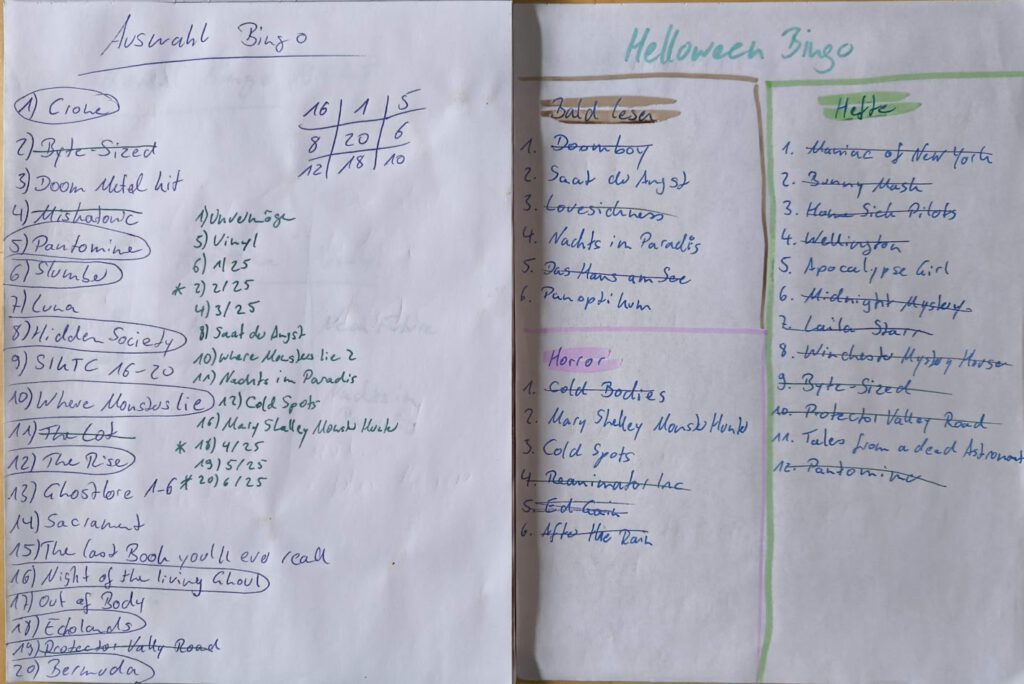 Auswahl Bingo
1) Crone
2) Byte-Sized
3) Doom Metal kit
4) Miskatonic
5) Pantomine
6) Slumber
7) Luna
8) Hidden Society
9) SIKTC 16-20
10) Where Monsters lie
11) The Lot
12) The Rise
13) Ghostlore 1-6
14) Sacrament
15) The last Book you'll ever read
16) Night of the living Ghoul
17) Out of Body
18) Edolands
19) Protector Vally Road
20) Bermuda
16 | 1 | 5
8 | 20 | 6
12 | 18 | 10
1) Unvermöge
5) Vinyl
6) 1/25
* 2) 2/25
4) 3/25
8) Saat der Angst
10) Where Monsters lie 2
11) Nachts im Paradis
12) Cold Spots
16) Mary Shelley Monster Hunter
* 18) 4/25
19) 5/25
* 20) 6/25
Helloween Bingo
Bald lesen
1. Doomboy
2. Saat der Angst
3. Lovesickness
4. Nachts im Paradis
5. Das Haus am See
6. Panoptikum
Horror
1. Cold Bodies
2. Mary Shelley Monster Hunter
3. Cold Spots
4. Reanimator Inc
5. Ed Gain
6. After the Rain
Hefte
1. Maniac of New York
2. Bunny Mask
3. Home Sick Pilots
4. Wellington
5. Apocalypse Girl
6. Midnight Mystery
7. Laila Starr
8. Winchester Mystery House
9. Byte-Sized
10. Protector Valley Road
11. Tales from a dead Astronaut
12. Pantomine